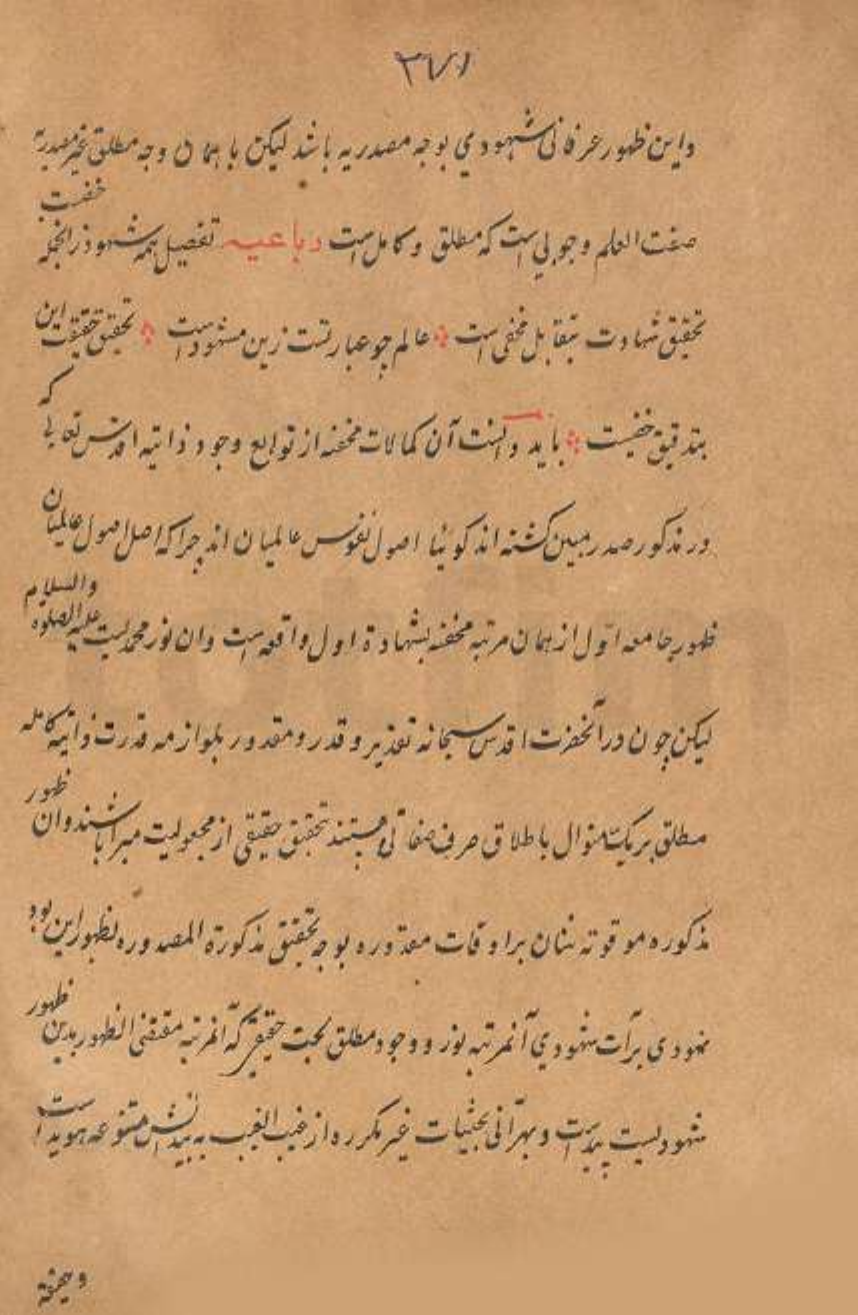 ۳۷۱
واین ظهور عرفانی شهودي بوجه مصدریه باشد لیکن با همان وجه مطلق غیر مصدریه
صفت العلم وجوبی است که مطلق و کامل است رباعیه تفصیل همه شهود ز انجمله خفیست
تحقیق شهادت بتقابل مخفی است عالم چو عبارتست زین مشهود است تحقیق حقیقت این
بتدقیق خفیست باید دانست آن کمالات مخفیه از توابع وجود ذاتیه اقدس تعالی که
در مذکور صدر مبین گشته اند گوئیا اصول نفوس عالمیان اند چرا که اصل اصول عالمیان
ظهور جامعه اول از همان مرتبه مخفیه بشهادة اول واقعه است وان نور محمدیست علیه الصلوة والسلام
لیکن چون در آنحضرت اقدس سبحانه تقدیر و قدر و مقدور بلوازمه قدرت ذاتیه کامله
مطلق بر یک منوال باطلاق صرف صفاتی هستند تحقیق حقیقی از مجعولیت مبرا باشند وان ظهور
مذکوره موقوته شان بر اوقات مقدوره بوجه تحقیق مذکورة المصدوره بظهور این بود
نهودي برآت شهودي آنمرتبه نور و وجود مطلق بحت حقیقی که آنمرتبه مقتضی الظهور بدین ظهور
شهودیست پیداست و بهر آنی بحیثیات غیر مکرره از غیب الغیب به متنوعه هویدا است